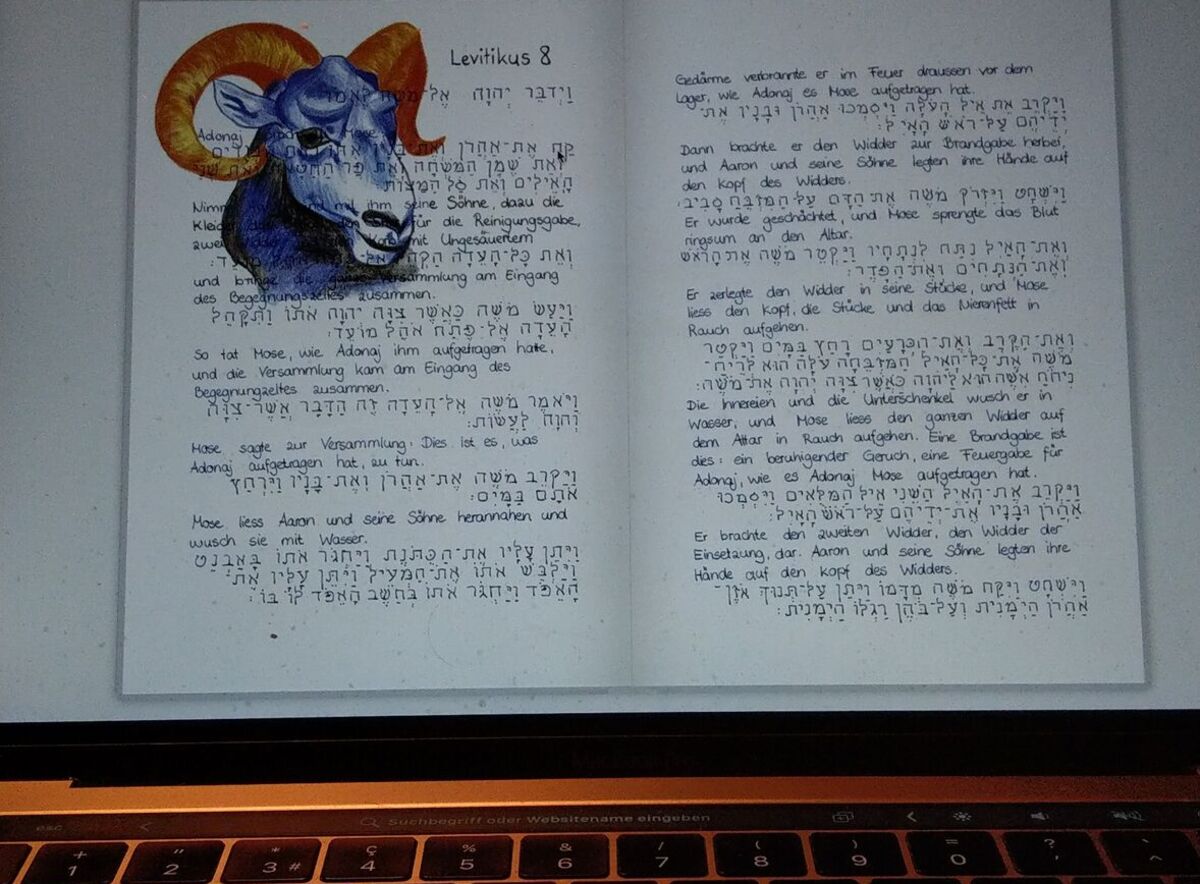 Levitikus 8
וַיְדַבֵּר יְהוָה אֶל־מֹשֶׁה לֵּאמֹר
Adonaj Mose
קַח אֶת־אַהֲרֹן וְאֶת־בָּנָיו אִתּוֹ
וְאֵת שֶׁמֶן הַמִּשְׁחָה וְאֵת פַּר הַחַטָּאת וְאֵת שְׁנֵי
הָאֵילִים וְאֵת סַל הַמַּצּוֹת
Nimm mit ihm seine Söhne, dazu die
Kleider für die Reinigungsgabe,
zwei mit Ungesäuertem
וְאֵת כָּל־הָעֵדָה הַקְהֵל אֶל־
und bringe die ganze Versammlung am Eingang
des Begegnungszeltes zusammen.
וַיַּעַשׂ מֹשֶׁה כַּאֲשֶׁר צִוָּה יְהוָה אֹתוֹ וַתִּקָּהֵל
הָעֵדָה אֶל־פֶּתַח אֹהֶל מוֹעֵד׃
So tat Mose, wie Adonaj ihm aufgetragen hatte,
und die Versammlung kam am Eingang des
Begegnungzeltes zusammen.
וַיֹּאמֶר מֹשֶׁה אֶל־הָעֵדָה זֶה הַדָּבָר אֲשֶׁר־צִוָּה
יְהוָה לַעֲשׂוֹת׃
Mose sagte zur Versammlung: Dies ist es, was
Adonaj aufgetragen hat, zu tun.
וַיַּקְרֵב מֹשֶׁה אֶת־אַהֲרֹן וְאֶת־בָּנָיו וַיִּרְחַץ
אֹתָם בַּמָּיִם׃
Mose liess Aaron und seine Söhne herannahen und
wusch sie mit Wasser.
וַיִּתֵּן עָלָיו אֶת־הַכֻּתֹּנֶת וַיַּחְגֹּר אֹתוֹ בָּאַבְנֵט
וַיַּלְבֵּשׁ אֹתוֹ אֶת־הַמְּעִיל וַיִּתֵּן עָלָיו אֶת־
הָאֵפֹד וַיַּחְגֹּר אֹתוֹ בְּחֵשֶׁב הָאֵפֹד לוֹ בּוֹ׃
Gedärme verbrannte er im Feuer draussen vor dem
Lager, wie Adonaj es Mose aufgetragen hat.
וַיַּקְרֵב אֵת אֵיל הָעֹלָה וַיִּסְמְכוּ אַהֲרֹן וּבָנָיו אֶת־
יְדֵיהֶם עַל־רֹאשׁ הָאָיִל׃
Dann brachte er den Widder zur Brandgabe herbei,
und Aaron und seine Söhne legten ihre Hände auf
den Kopf des Widders.
וַיִּשְׁחָט וַיִּזְרֹק מֹשֶׁה אֶת־הַדָּם עַל־הַמִּזְבֵּחַ סָבִיב׃
Er wurde geschächtet, und Mose sprengte das Blut
ringsum an den Altar.
וְאֶת־הָאַיִל נִתַּח לִנְתָחָיו וַיַּקְטֵר מֹשֶׁה אֶת־הָרֹאשׁ
וְאֶת־הַנְּתָחִים וְאֶת־הַפָּדֶר׃
Er zerlegte den Widder in seine Stücke, und Mose
liess den Kopf, die Stücke und das Nierenfett in
Rauch aufgehen.
וְאֶת־הַקֶּרֶב וְאֶת־הַכְּרָעַיִם רָחַץ בַּמָּיִם וַיַּקְטֵר
מֹשֶׁה אֶת־כָּל־הָאַיִל הַמִּזְבֵּחָה עֹלָה הוּא לְרֵיחַ־
נִיחֹחַ אִשֶּׁה הוּא לַיהוָה כַּאֲשֶׁר צִוָּה יְהוָה אֶת־מֹשֶׁה׃
Die Innereien und die Unterschenkel wusch er in
Wasser, und Mose liess den ganzen Widder auf
dem Altar in Rauch aufgehen. Eine Brandgabe ist
dies: ein beruhigender Geruch, eine Feuergabe für
Adonaj, wie es Adonaj Mose aufgetragen hat.
וַיַּקְרֵב אֶת־הָאַיִל הַשֵּׁנִי אֵיל הַמִּלֻּאִים וַיִּסְמְכוּ
אַהֲרֹן וּבָנָיו אֶת־יְדֵיהֶם עַל־רֹאשׁ הָאָיִל׃
Er brachte den zweiten Widder, den Widder der
Einsetzung, dar. Aaron und seine Söhne legten ihre
Hände auf den Kopf des Widders.
וַיִּשְׁחָט וַיִּקַּח מֹשֶׁה מִדָּמוֹ וַיִּתֵּן עַל־תְּנוּךְ אֹזֶן־
אַהֲרֹן הַיְמָנִית וְעַל־בֹּהֶן רַגְלוֹ הַיְמָנִית׃
esc
Suchbegriff oder Websitename eingeben
+ " * ç % & / ( ) = ? `
1 2 3 # 4 5 6 7 8 9 0 ' ^